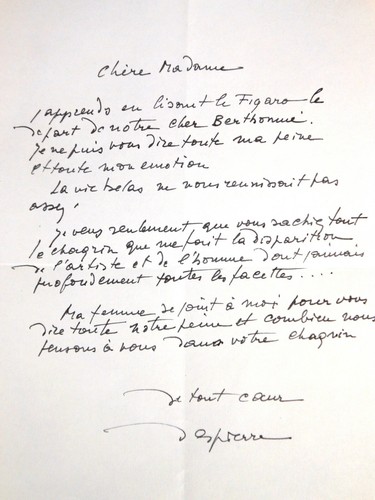 Chère Madame
J'apprends en lisant le Figaro le
départ de notre cher Berthommé.
Je ne puis vous dire toute ma peine
et toute mon emotion
La vie helas ne nous reunissait pas
assez!
Je veux seulement que vous sachiez tout
le chagrin que me fait la disparition
de l'artiste et de l'homme dont j'aimais
profondement toutes les facettes....
Ma femme se joint à moi pour vous
dire toute notre peine et combien nous
pensons à vous dans votre chagrin
de tout cœur
Despierre